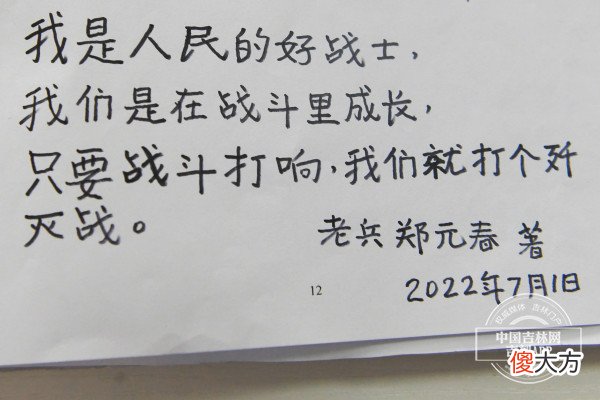 我是人民的好战士,
我们是在战斗里成长,
只要战斗打响,我们就打个歼
灭战。
老兵郑元春 著
2022年7月1日
12
权威媒体 吉林门户
中国吉林网
傻大方